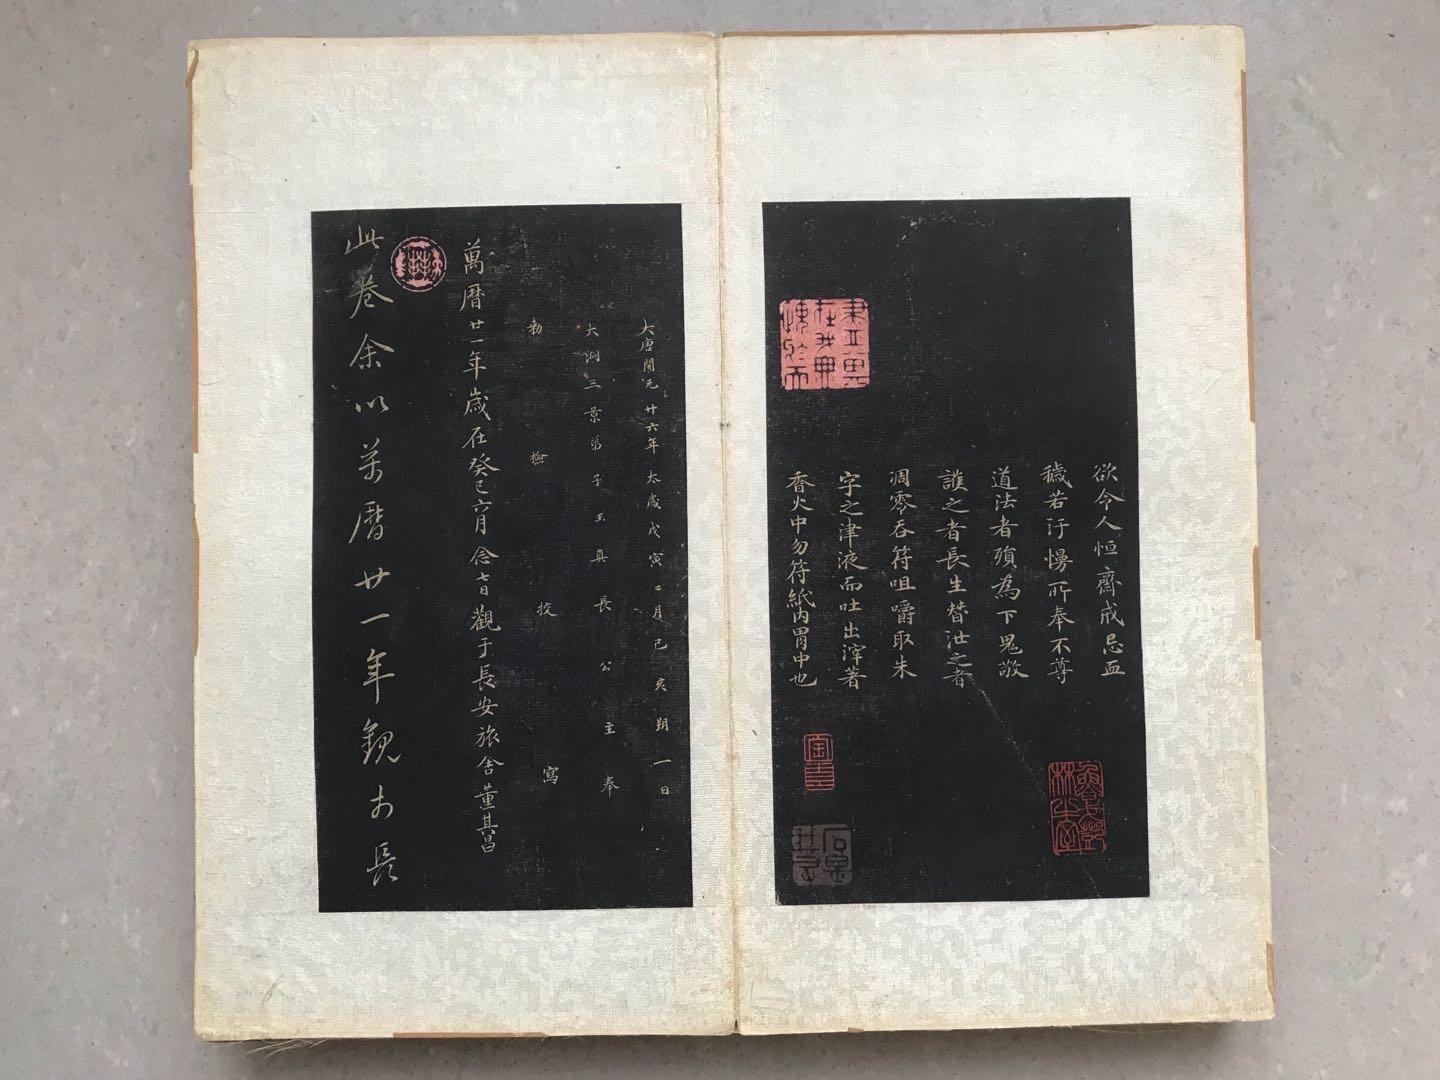 欲令人恒齋戒忌血
穢若汙慢所奉不尊
道法者殞為下鬼敬
護之者長生替泄之者
凋零吞符咀嚼取朱
字之津液而吐出滓著
香火中勿符紙內胃中也
大唐開元廿六年太歲戊寅二月己亥朔一日
大洞三景弟子玉真長公主奉
勑檢校寫
萬曆廿一年歲在癸巳六月念七日觀于長安旅舍董其昌
此卷余以萬曆廿一年觀於長